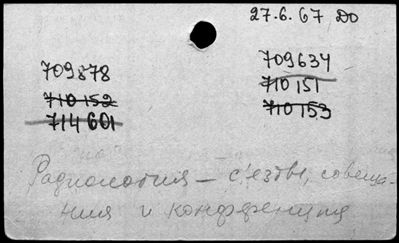 27.6.67 До
709878
710152
714601
709634
710151
710153
Радиология – съезды, совеща-
ния и конференция